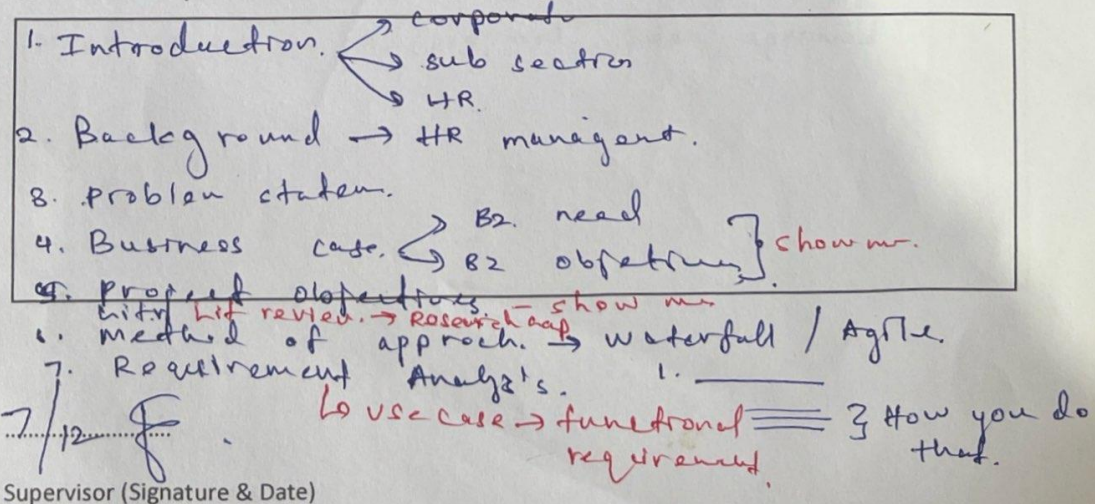 corporate
1. Introduction.
sub section
HR.
2. Background → HR managent.
3. Problem statem.
B2. need
4. Business case.
B2 objetives } show me.
5. Project objectives - show me
Litr Lit review. → Research gap
6. method of approch. → waterfall / Agile
7. Requirement Analys's. 1.
↳ use case → functional } How you do
requirement. that.
7/12
Supervisor (Signature & Date)